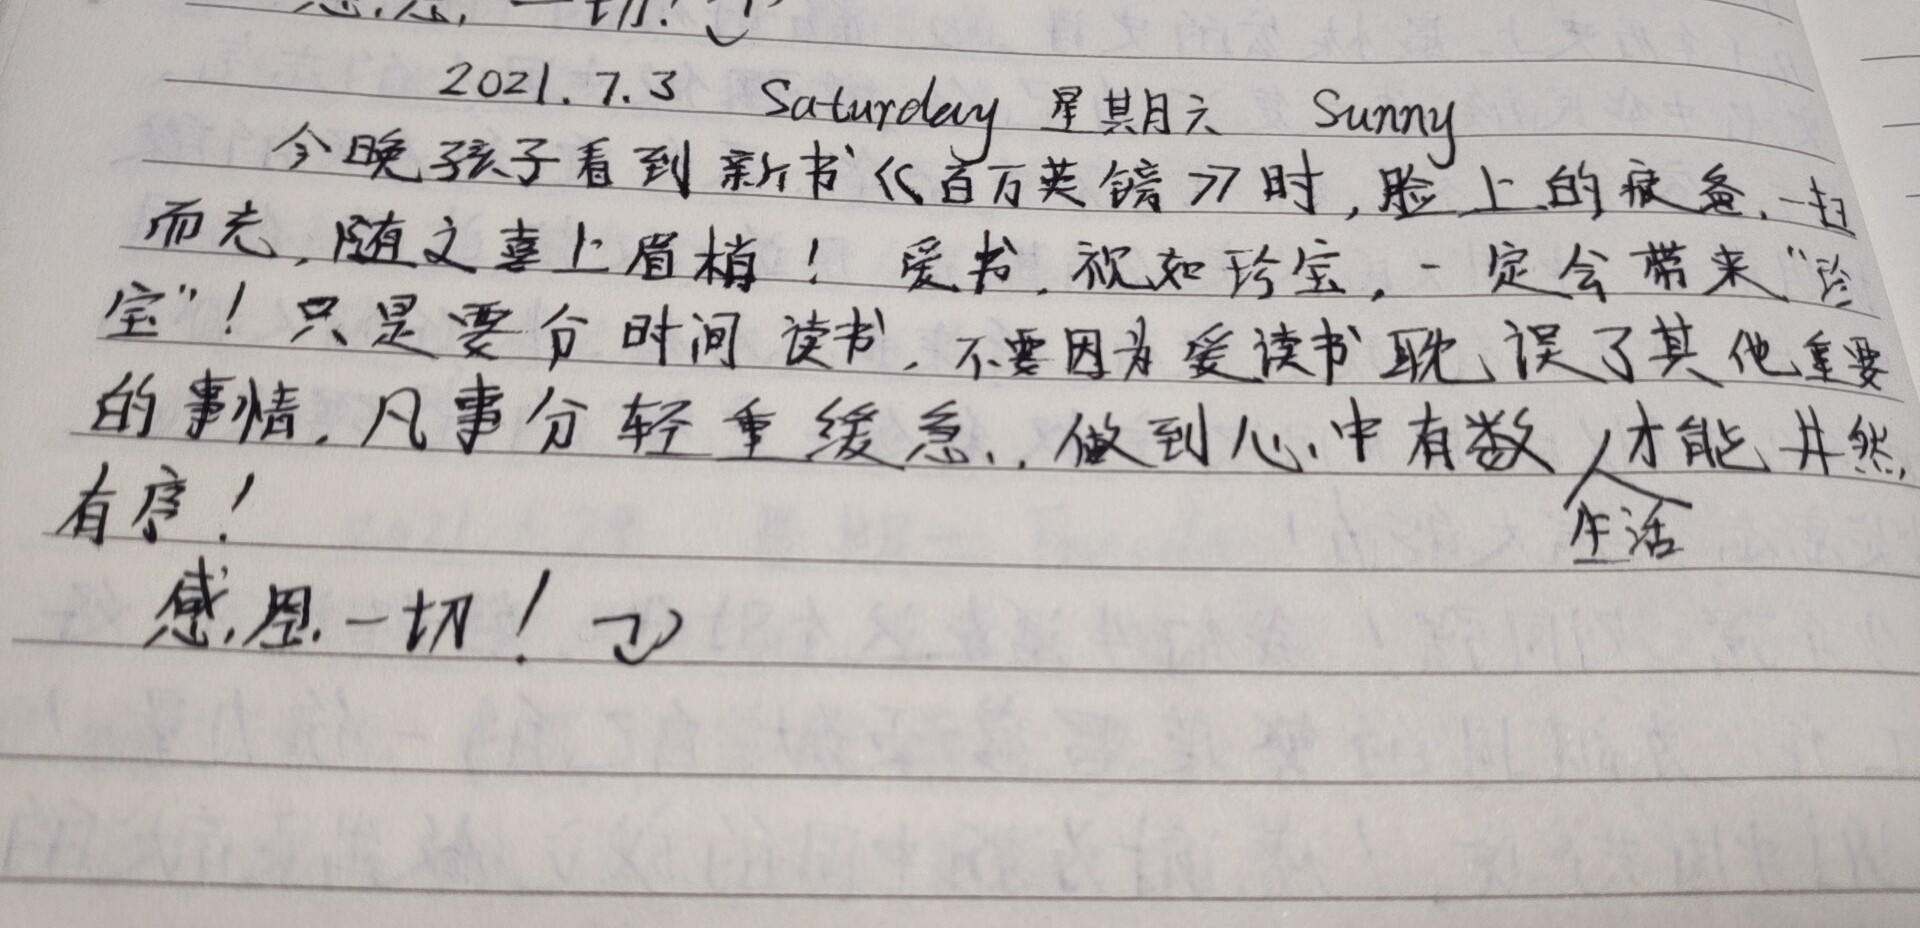 感恩一切!
2021.7.3 Saturday 星期六 Sunny
今晚孩子看到新书《百万英镑》时,脸上的疲惫一扫
而光,随之喜上眉梢! 爱书,视如珍宝,一定会带来“珍
宝”!只是要分时间读书,不要因为爱读书耽误了其他重要
的事情,凡事分轻重缓急,做到心中有数生活才能井然
有序!
感恩一切!